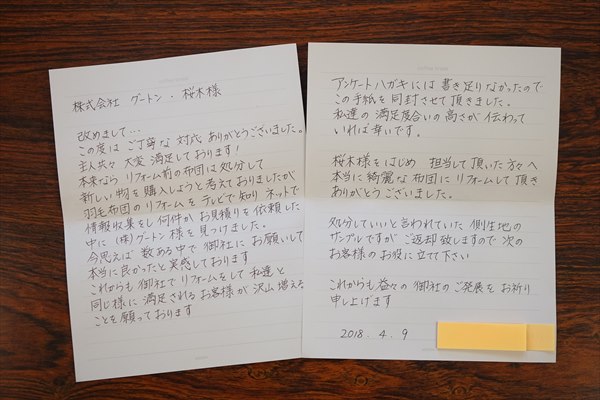 株式会社 グートン・桜木様
改めまして…
この度は ご丁寧な 対応 ありがとうございました。
主人共々 大変 満足しております!
本来なら リフォーム前の布団は処分して
新しい物を購入しようと考えておりましたが
羽毛布団のリフォームを テレビで知り ネットで
情報収集をし 何件か お見積りを 依頼した
中に (株)グートン様を見つけました。
今思えば 数ある中で 御社に お願いして
本当に良かったと実感しております
これからも 御社で リフォームをして 私達と
同じ様に満足されるお客様が 沢山 増える
ことを願っております
アンケートハガキには 書き足りなかったので
この手紙を同封させて頂きました。
私達の満足度合いの高さが 伝わって
いれば幸いです。
桜木様をはじめ 担当して頂いた方々へ
本当に綺麗な布団にリフォームして頂き
ありがとうございました。
処分していいと言われていた 側生地の
サンプルですがご返却致しますので次の
お客様のお役に立て下さい
これからも益々の 御社のご発展をお祈り
申し上げます
2018. 4. 9